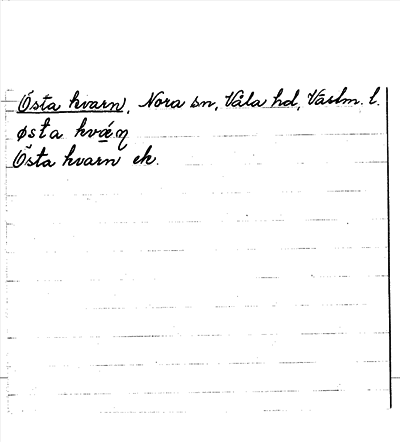 Östa kvarn, Nora sn, Våla hd, Vastm. l.
østa kvǽɳ
Östa kvarn ek.